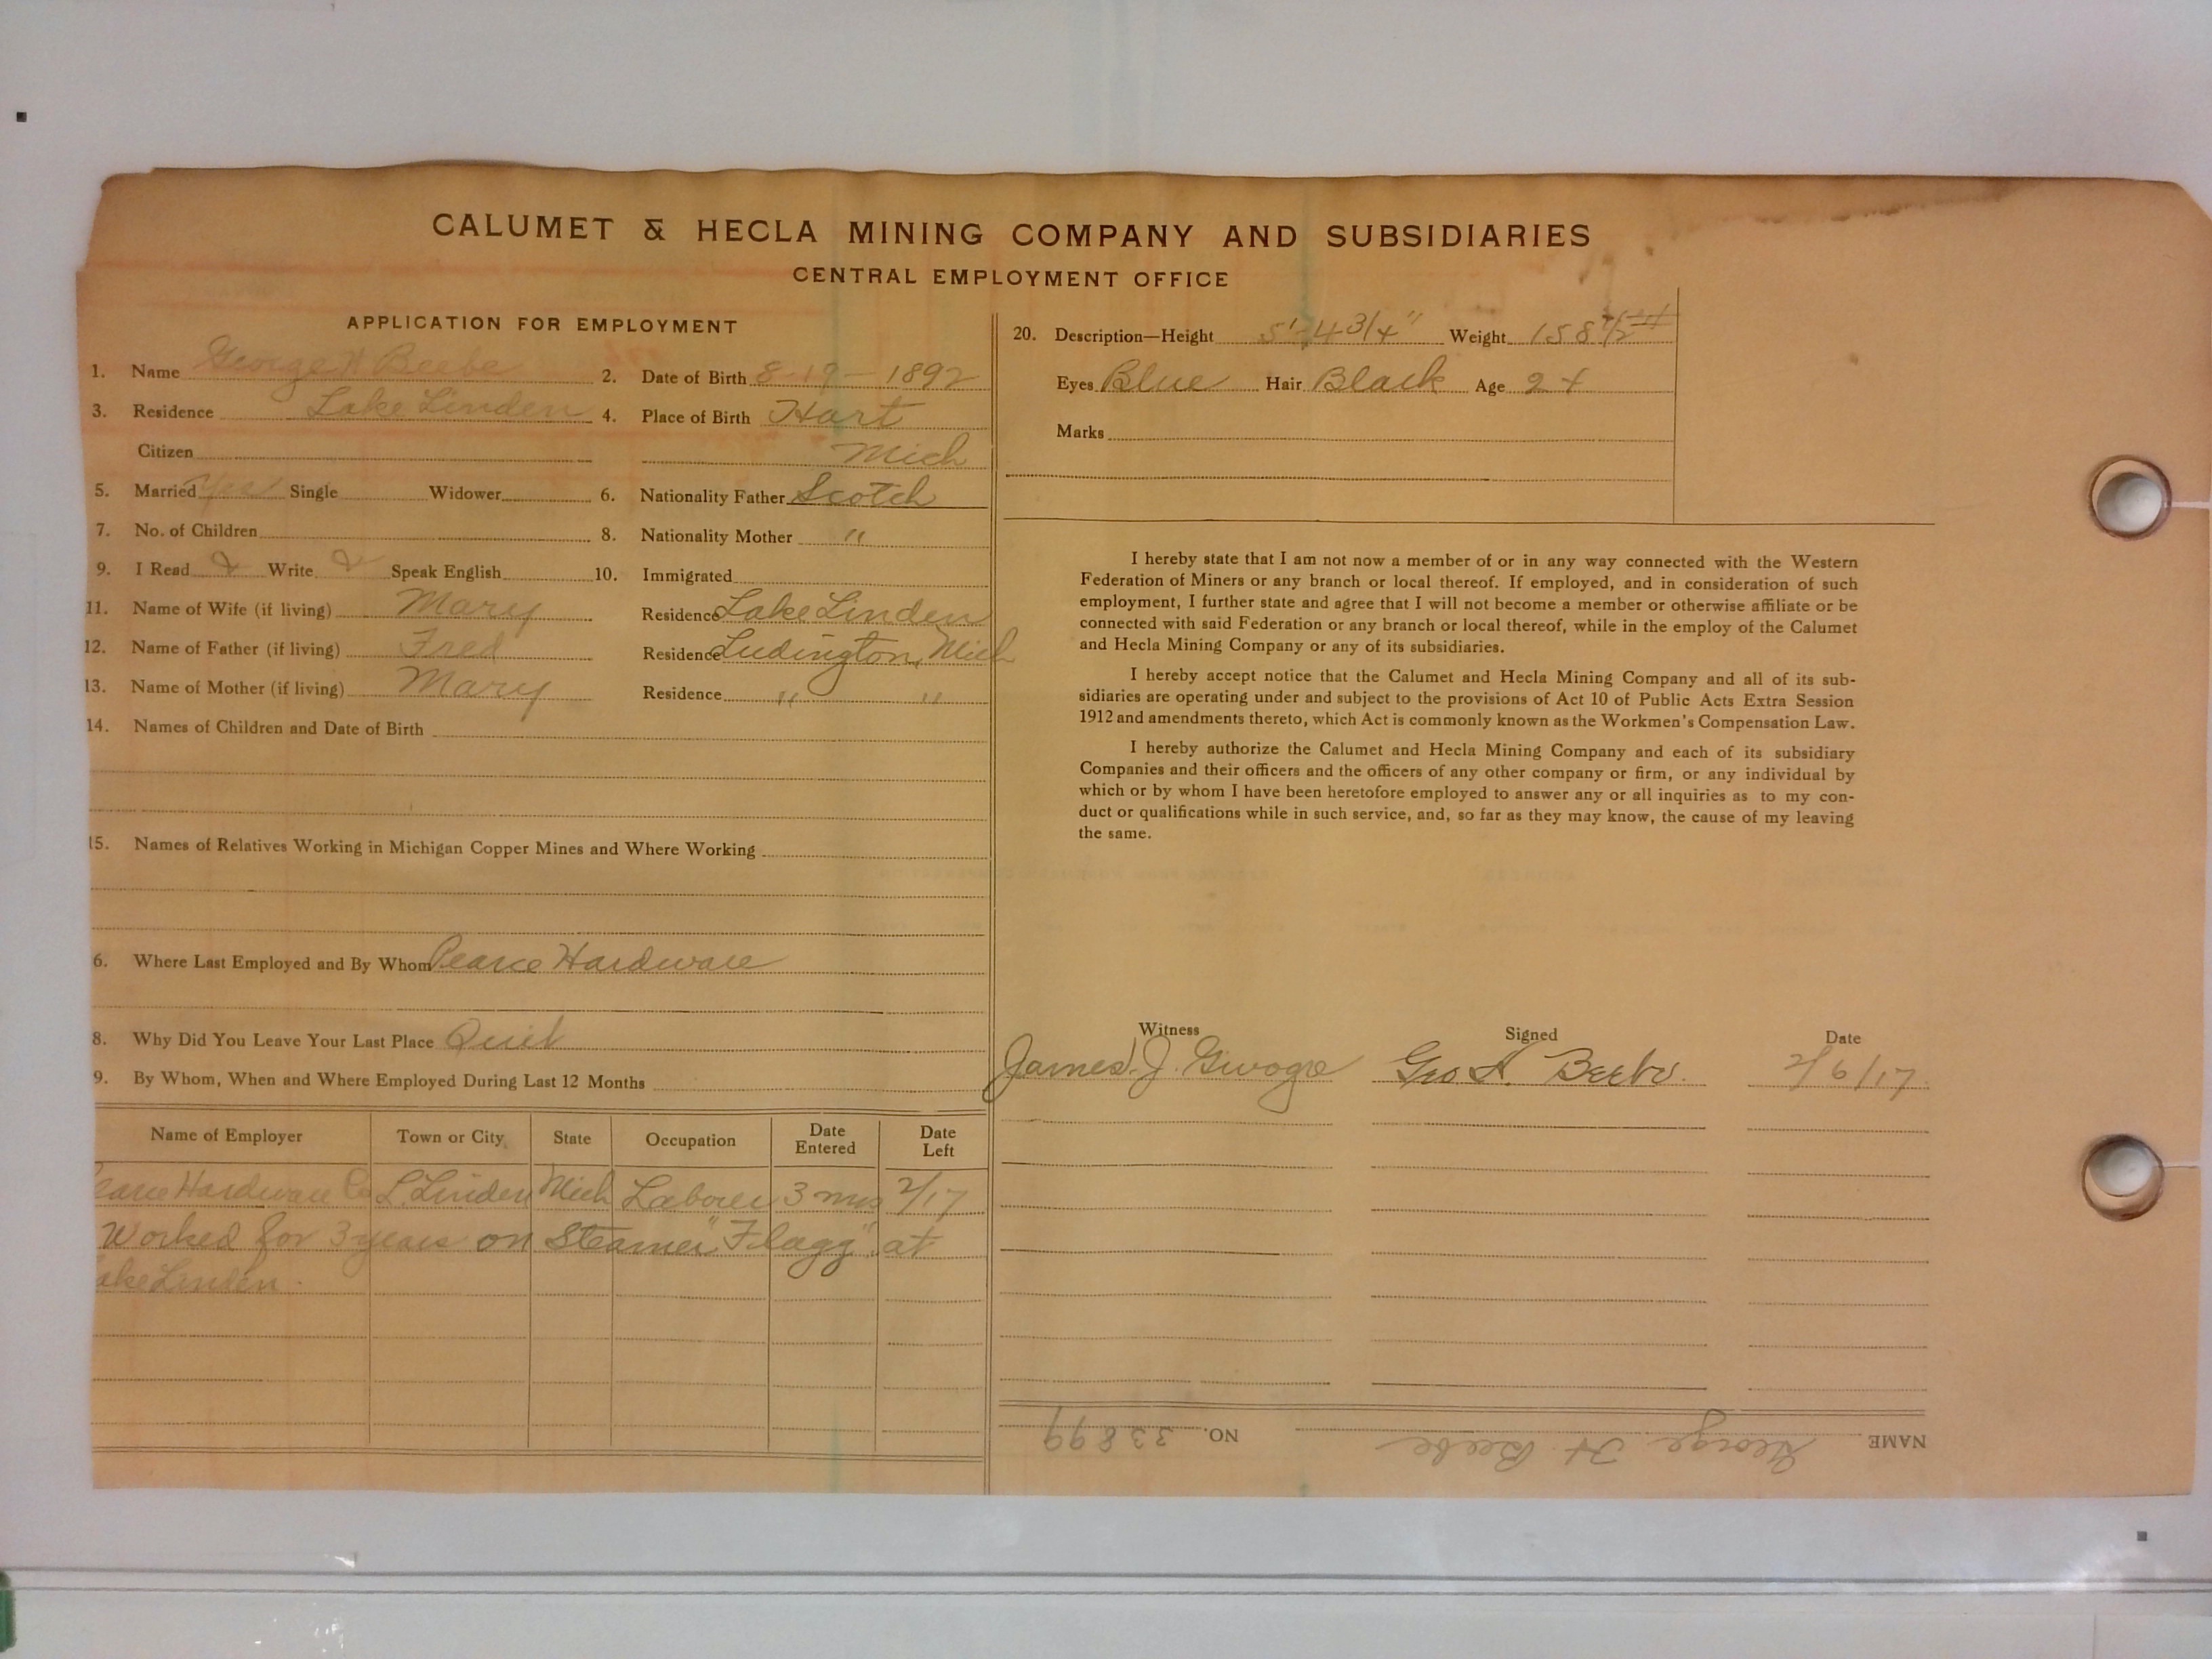 CALUMET & HECLA MINING COMPANY AND SUBSIDIARIES
CENTRAL EMPLOYMENT OFFICE
APPLICATION FOR EMPLOYMENT
1. Name George H Beebe 2. Date of Birth 8-19-1892
3. Residence Lake Linden 4. Place of Birth Hart
Citizen Mich
5. Married Yes Single Widower 6. Nationality Father Scotch
7. No. of Children 8. Nationality Mother "
9. I Read Write Speak English 10. Immigrated
11. Name of Wife (if living) Mary Residence Lake Linden
12. Name of Father (if living) Fred Residence Ludington, Mich
13. Name of Mother (if living) Mary Residence " "
14. Names of Children and Date of Birth
15. Names of Relatives Working in Michigan Copper Mines and Where Working
6. Where Last Employed and By Whom Pearce Hardware
8. Why Did You Leave Your Last Place Quit
9. By Whom, When and Where Employed During Last 12 Months
Name of Employer Town or City State Occupation Date Entered Date Left
earce Hardware Co L. Linden Mich Laborer 3 mos 2/17
Worked for 3 years on Steamer "Flagg" at
ake Linden
20. Description—Height 5'-4 3/4" Weight 158 1/2
Eyes Blue Hair Black Age 24
Marks
I hereby state that I am not now a member of or in any way connected with the Western
Federation of Miners or any branch or local thereof. If employed, and in consideration of such
employment, I further state and agree that I will not become a member or otherwise affiliate or be
connected with said Federation or any branch or local thereof, while in the employ of the Calumet
and Hecla Mining Company or any of its subsidiaries.
I hereby accept notice that the Calumet and Hecla Mining Company and all of its sub-
sidiaries are operating under and subject to the provisions of Act 10 of Public Acts Extra Session
1912 and amendments thereto, which Act is commonly known as the Workmen's Compensation Law.
I hereby authorize the Calumet and Hecla Mining Company and each of its subsidiary
Companies and their officers and the officers of any other company or firm, or any individual by
which or by whom I have been heretofore employed to answer any or all inquiries as to my con-
duct or qualifications while in such service, and, so far as they may know, the cause of my leaving
the same.
Witness Signed Date
James J. Geo H. Beebe. 2/6/17
NAME George H Beebe NO. 33899